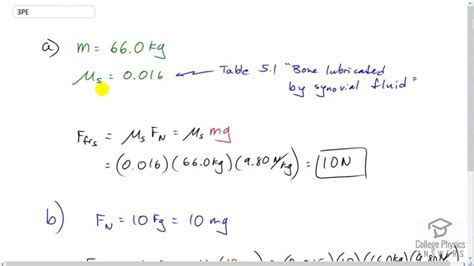 3PE
a) m = 66.0 kg
μs = 0.016 ← Table 5.1 "Bone lubricated
by synovial fluid"
Ffrs = μs FN = μs mg
= (0.016)(66.0kg)(9.80 N/kg) = 10N
b) FN = 10 Fg = 10 mg
College Physics